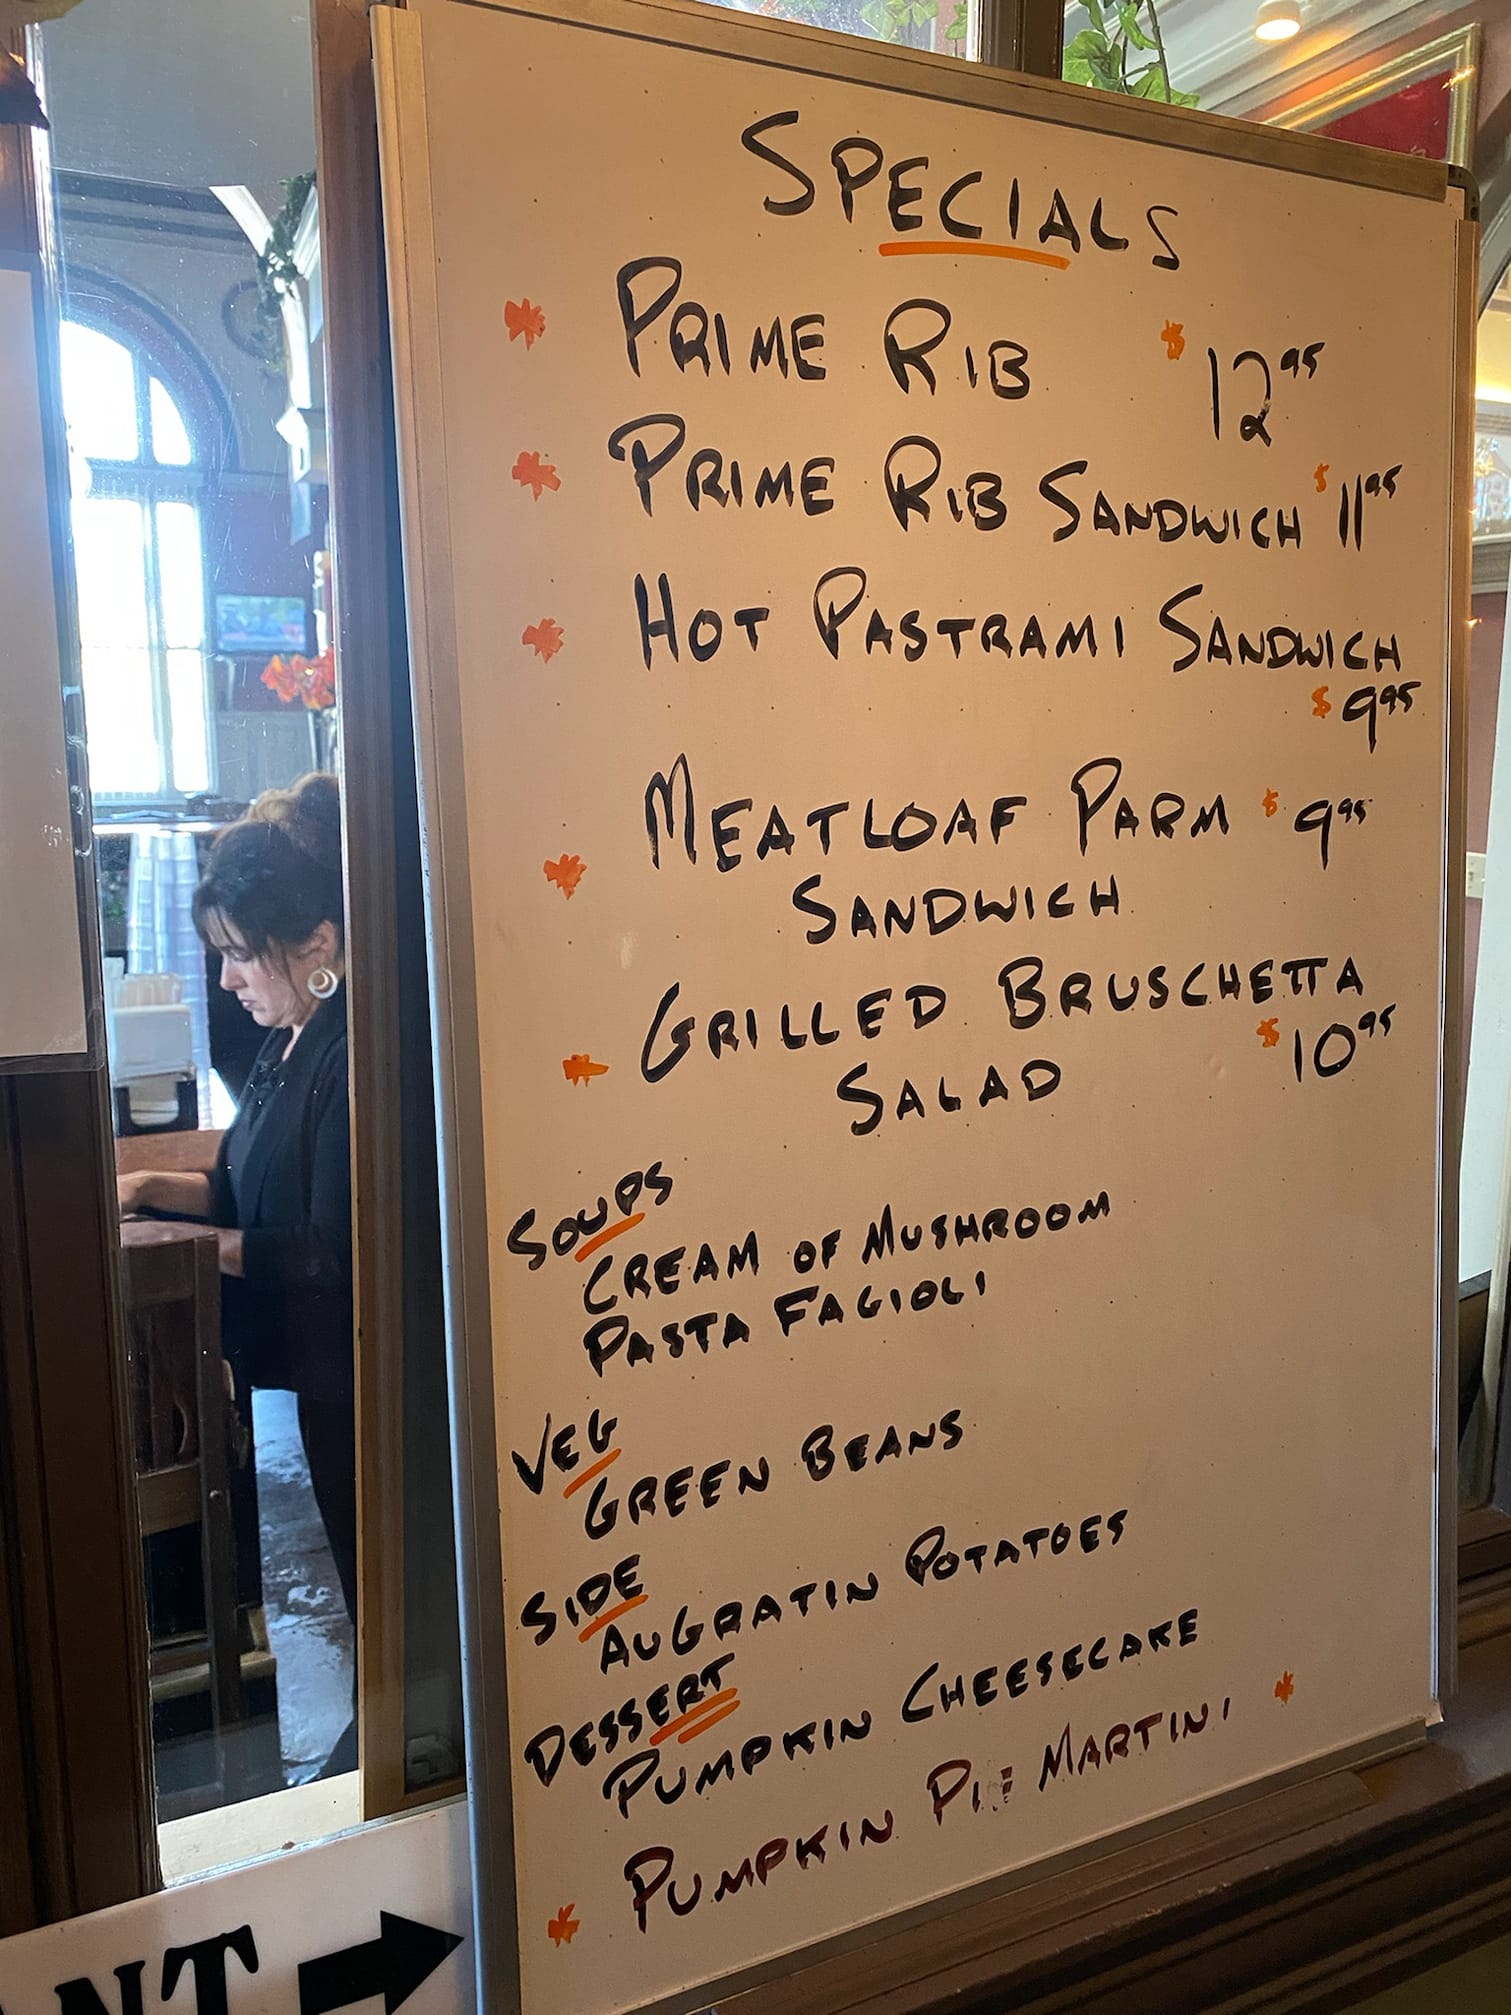 SPECIALS
PRIME RIB $12.95
PRIME RIB SANDWICH $11.95
HOT PASTRAMI SANDWICH
$9.95
MEATLOAF PARM $9.95
SANDWICH
GRILLED BRUSCHETTA
SALAD $10.95
SOUPS
CREAM OF MUSHROOM
PASTA FAGIOLI
VEG
GREEN BEANS
SIDE
AUGRATIN POTATOES
DESSERT
PUMPKIN CHEESECAKE
PUMPKIN PIE MARTINI
NT